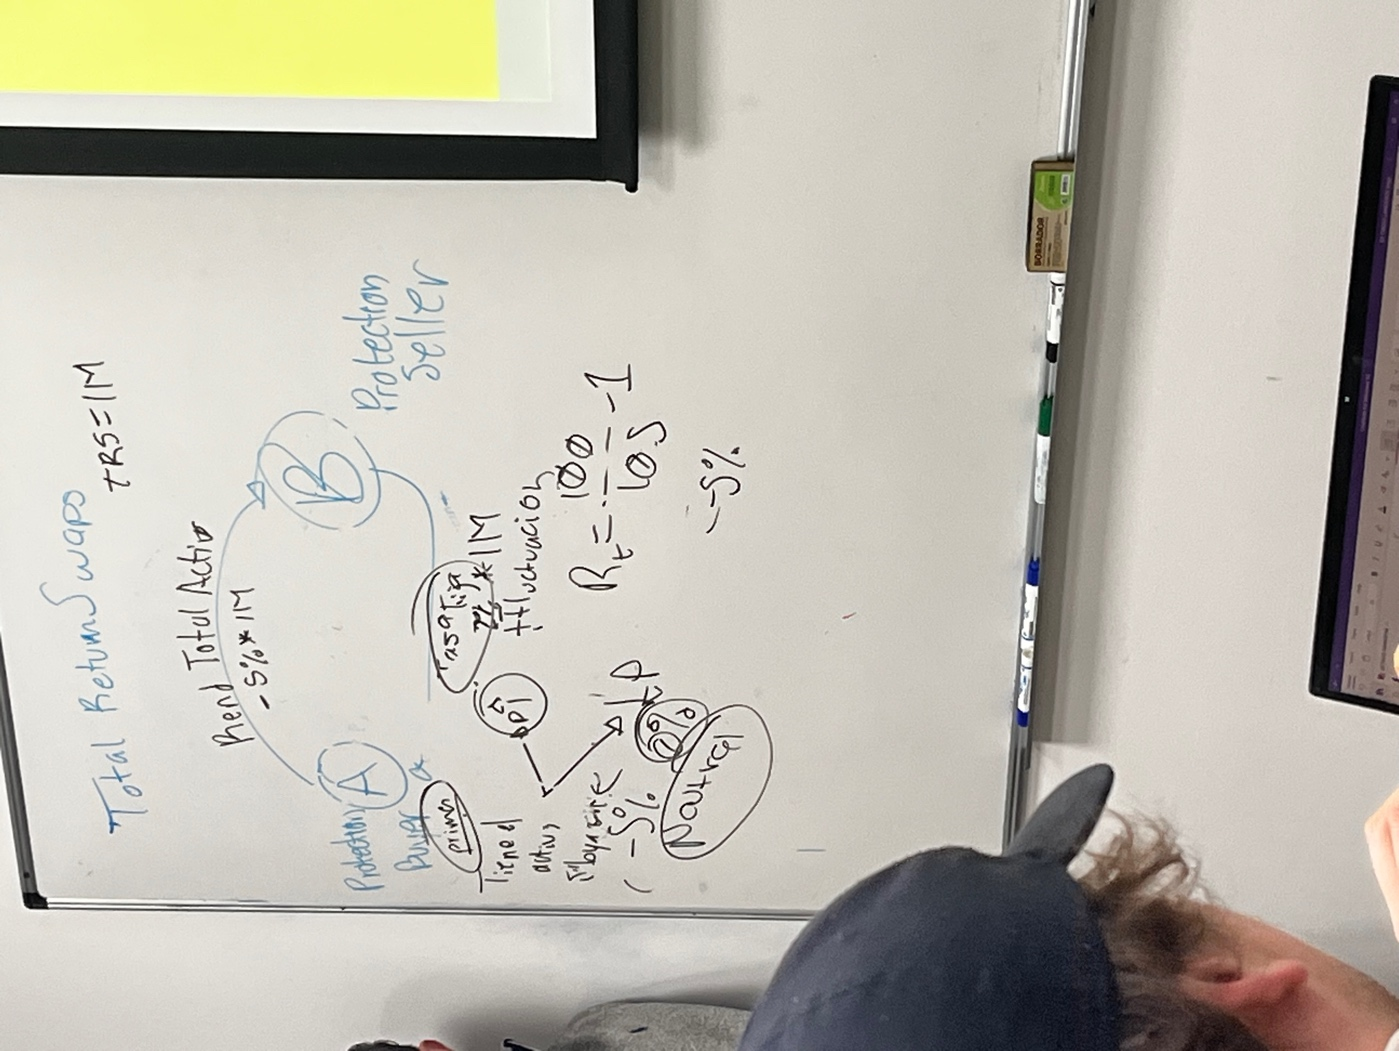 Total Return Swaps
TRS = 1M
Rend Total Activo
-5% * 1M
A
B
Protection
Buyer
Protection
Seller
prima
Tasa fija
7% * 1M
± fluctuación
Tiene el
activo
-5%
0%
Neutral
R_t = 100 / 105 - 1
-5%
BORRADOR